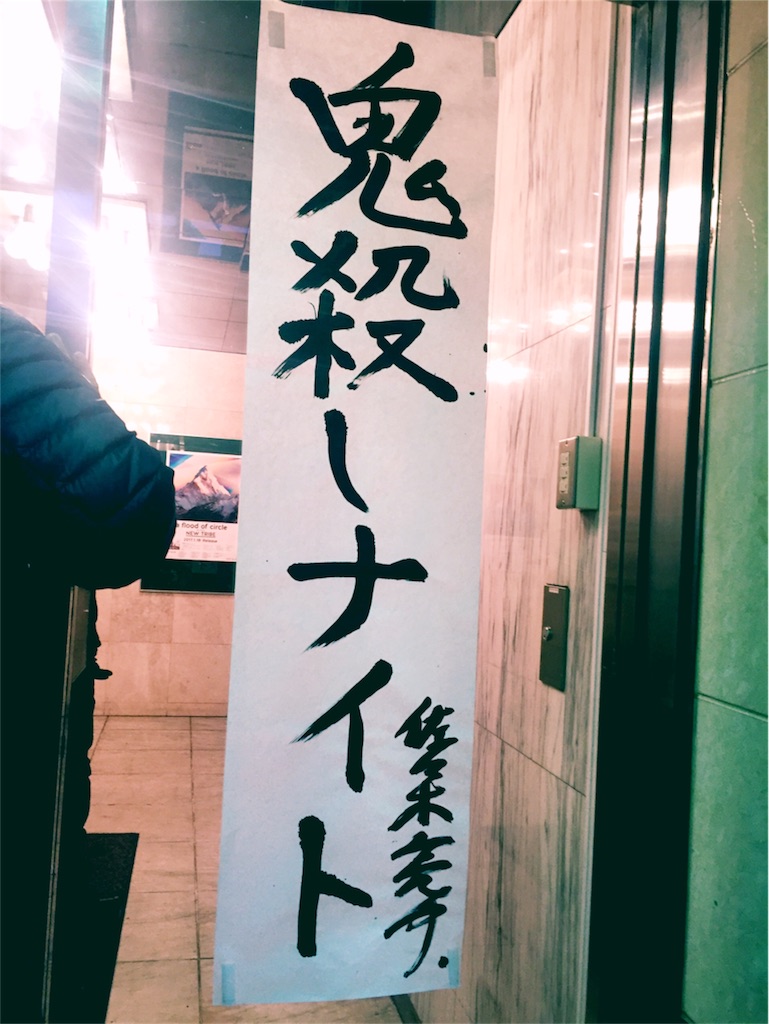 鬼殺しナイト
佐々木亮介.
a flood of circle
NEW TRIBE